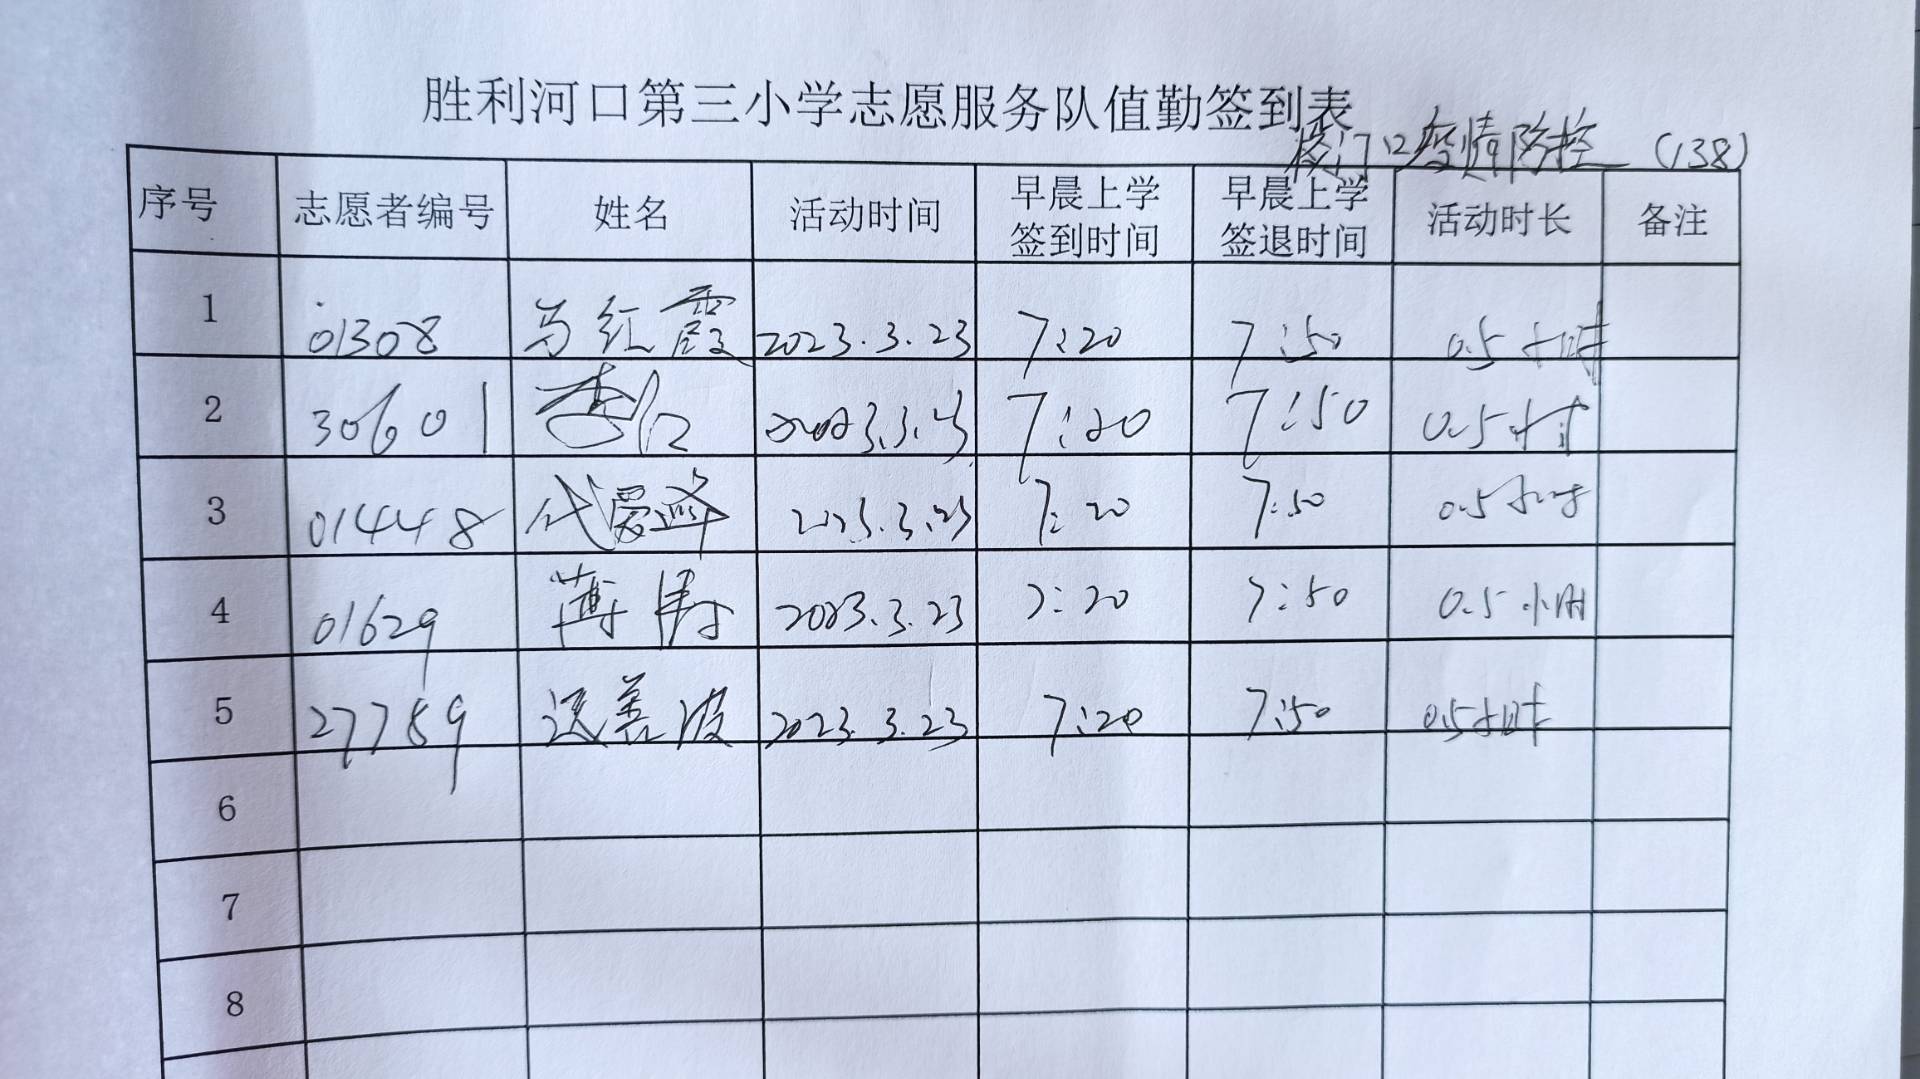 胜利河口第三小学志愿服务队值勤签到表
校门口疫情防控 (138)
序号 志愿者编号 姓名 活动时间 早晨上学签到时间 早晨上学签退时间 活动时长 备注
1 01308 马红霞 2023.3.23 7:20 7:50 0.5小时
2 30601 李仁 2023.3.23 7:20 7:50 0.5小时
3 01448 代爱 2023.3.23 7:20 7:50 0.5小时
4 01629 薄涛 2023.3.23 7:20 7:50 0.5小时
5 27759 善波 2023.3.23 7:20 7:50 0.5小时
6
7
8